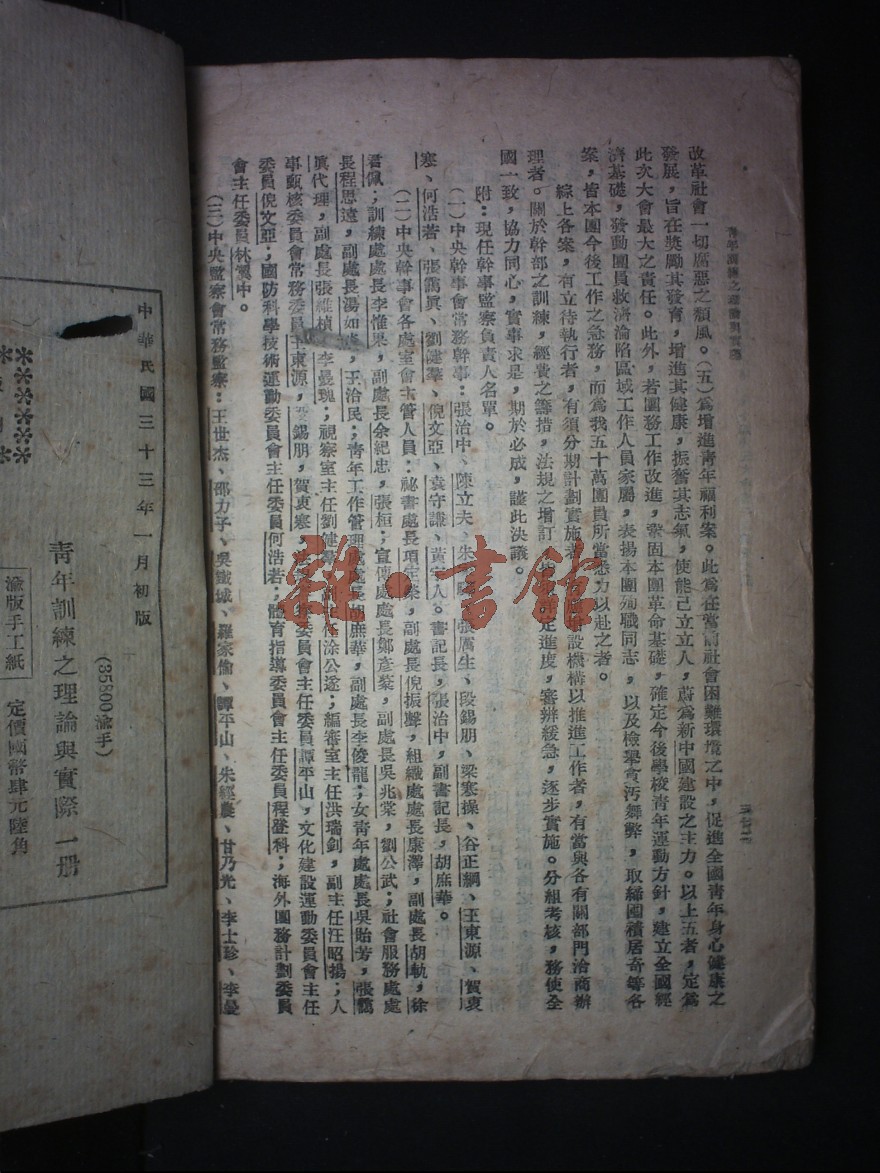 青年訓練之理論與實際
改革社會一切腐惡之頹風。(五)爲增進青年福利案。此爲在當前社會困難環境之中,促進全國青年身心健康之
發展,旨在獎勵其發育,增進其健康,振奮其志氣,使能己立立人,蔚爲新中國建設之主力。以上五者,定爲
此次大會最大之責任。此外,若團務工作改進,鞏固本團革命基礎,確定今後學校青年運動方針,建立全國經
濟基礎,發動團員救濟淪陷區域工作人員家屬,表揚本團殉職同志,以及檢舉貪污舞弊,取締囤積居奇等各
案,皆本團今後工作之急務,而爲我五十萬團員所當悉力以赴之者。
綜上各案,有立待執行者,有須分期計劃實施者,設機構以推進工作者,有當與各有關部門洽商辦
理者。關於幹部之訓練,經費之籌措,法規之增訂,定進度,審辨緩急,逐步實施。分組考核,務使全
國一致,協力同心,實事求是,期於必成,謹此決議。
附:現任幹事監察負責人名單。
(一)中央幹事會常務幹事:張治中、陳立夫、朱張厲生、段錫朋、梁寒操、谷正綱、王東源、賀衷
寒、何浩若、張靄眞、劉健羣、倪文亞、袁守謙、黃宇人。書記長,張治中,副書記長,胡庶華。
(二)中央幹事會各處室會主管人員:祕書處長項定榮,副處長倪振聲,組織處處長康澤,副處長胡軌,徐
君佩;訓練處處長李惟果,副處長余紀忠,張桓;宣傳處處長鄭彥棻,副處長吳兆棠,劉公武;社會服務處處
長程思遠,副處長湯如,王洽民;青年工作管理處處長胡庶華,副處長李俊龍;女青年處處長吳貽芳,張靄
眞代理,副處長張維楨,李曼瑰;視察室主任劉健羣,副主任涂公遂;編審室主任洪瑞釗,副主任汪昭揚;人
事甄核委員會常務委員王東源,錫朋,賀衷寒,委員會主任委員譚平山,文化建設運動委員會主任
委員倪文亞;國防科學技術運動委員會主任委員何浩若;體育指導委員會主任委員程登科;海外團務計劃委員
會主任委員林翼中。
(三)中央監察會常務監察:王世杰、邵力子、吳鐵城、羅家倫、譚平山、朱經農、甘乃光、李士珍、李曼
中華民國三十三年一月初版
(35800渝手)
青年訓練之理論與實際 一册
渝版手工紙 定價國幣肆元陸角
雜·書館